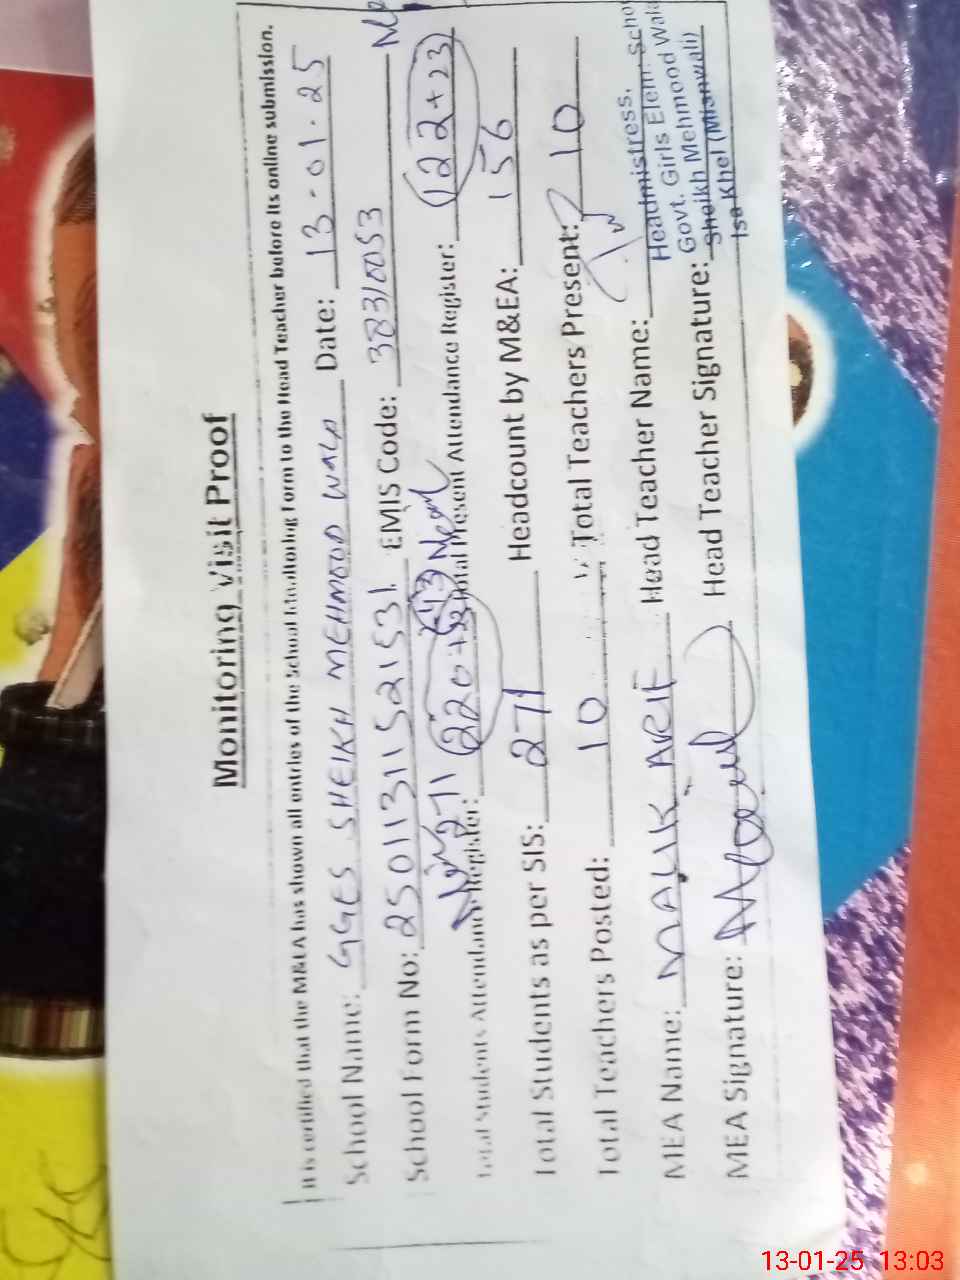 Monitoring Visit Proof
It is certified that the M&EA has shown all entries of the School Monitoring Form to the Head Teacher before its online submission.
School Name: GGES SHEIKH MEHMOOD WALA Date: 13-01-25
School Form No: 25011311521531 EMIS Code: 38310053
271
Total Students Attendance Register: (220+ Total Present Attendance Register: (122+23)
Total Students as per SIS: 271 Headcount by M&EA: 156
Total Teachers Posted: 10 Total Teachers Present: 10
MEA Name: MALIK ARIF Head Teacher Name:
MEA Signature: Head Teacher Signature:
Headmistress.
Govt. Girls Elem: Scho
Sheikh Mehmood Wala
Isa Khel (Mianwali)
13-01-25 13:03